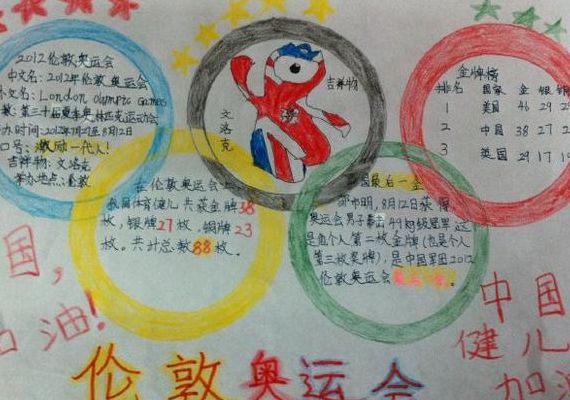 2012伦敦奥运会
中文名：2012年伦敦奥运会
文名：London olympic Games
数：第三十届夏季奥林匹克运动会
办时间：2012年7月27至8月12日
口号：激励一代人！
吉祥物：文洛克
举办地点：伦敦
吉祥物
文洛克
金牌榜
排名 国家 金 银 铜
1 美国 46 29
2 中国 38 27
3 英国 29 17
在伦敦奥运会上
我国体育健儿共获金牌38
枚，银牌27枚，铜牌23
枚。共计总数88枚。
国最后一金
邹市明，8月12日获得
奥运会男子拳击49kg级冠军这
是他个人第二枚金牌（也是个人
第三枚奖牌），是中国军团2012
伦敦奥运会
国，
油！
中国
健儿
加油
伦敦奥运会